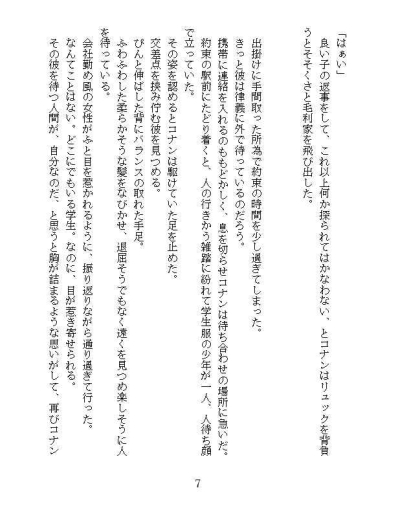 「はぁい」
　良い子の返事をして、これ以上何か探られてはかなわない、とコナンはリュックを背負
うとそそくさと毛利家を飛び出した。
　出掛けに手間取った所為で約束の時間を少し過ぎてしまった。
　きっと彼は律義に外で待っているのだろう。
　携帯に連絡を入れるのももどかしく、息を切らせコナンは待ち合わせの場所に急いだ。
　約束の駅前にたどり着くと、人の行きかう雑踏に紛れて学生服の少年が一人、人待ち顔
で立っていた。
　その姿を認めるとコナンは駆けていた足を止めた。
　交差点を挟み佇む彼を見つめる。
　ぴんと伸ばした背にバランスの取れた手足。
　ふわふわした柔らかそうな髪をなびかせ、退屈そうでもなく遠くを見つめ楽しそうに人
を待っている。
　会社勤め風の女性がふと目を惹かれるように、振り返りながら通り過ぎて行った。
　なんてことはない。どこにでもいる学生。なのに、目が惹き寄せられる。
　その彼を待つ人間が、自分なのだ、と思うと胸が詰まるような思いがして、再びコナン
7